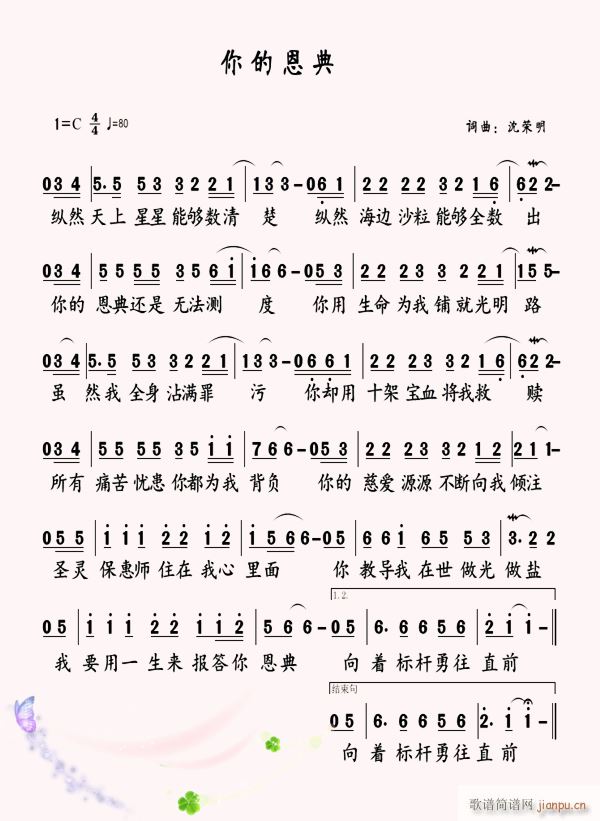 你的恩典
1=C 4/4 ♩=80
词曲：沈荣明
034 | 5.5 53 322 21 | 133- 061 | 22 22 321 6 | 622-
纵然天上星星能够数清 楚 纵然海边沙粒能够全数 出
034 | 555 555 35 561 | 166- 053 | 22 23 5321 | 155-
你的 恩典还是 无法测 度 你用 生命为我 铺就光明 路
034 | 5.5 53 322 21 | 133- 0661 | 22 22 321 6 | 622-
虽 然我 全身 沾满罪 污 你却用 十架 宝血 将我救 赎
034 | 55 53 5611 | 766- 053 | 22 23 5312 | 211-
所有 痛苦 忧患 你都为我 背负 你的 慈爱 源源 不断向我 倾注
055 | 11 12 22 12 | 1566- 05 | 661 65 53 | 3.22
圣灵 保惠师 住在 我心 里面 你 教导我 在世 做光 做盐
05 | 111 12 12 | 566- 05 | 6.6656 | 211-
我 要用一生来 报答你 恩典 向 着 标杆勇往 直前
1.2.
结束句
05 | 6.6656 | 2.11-
向 着 标杆勇往 直前
歌谱简谱网
jianpu.cn